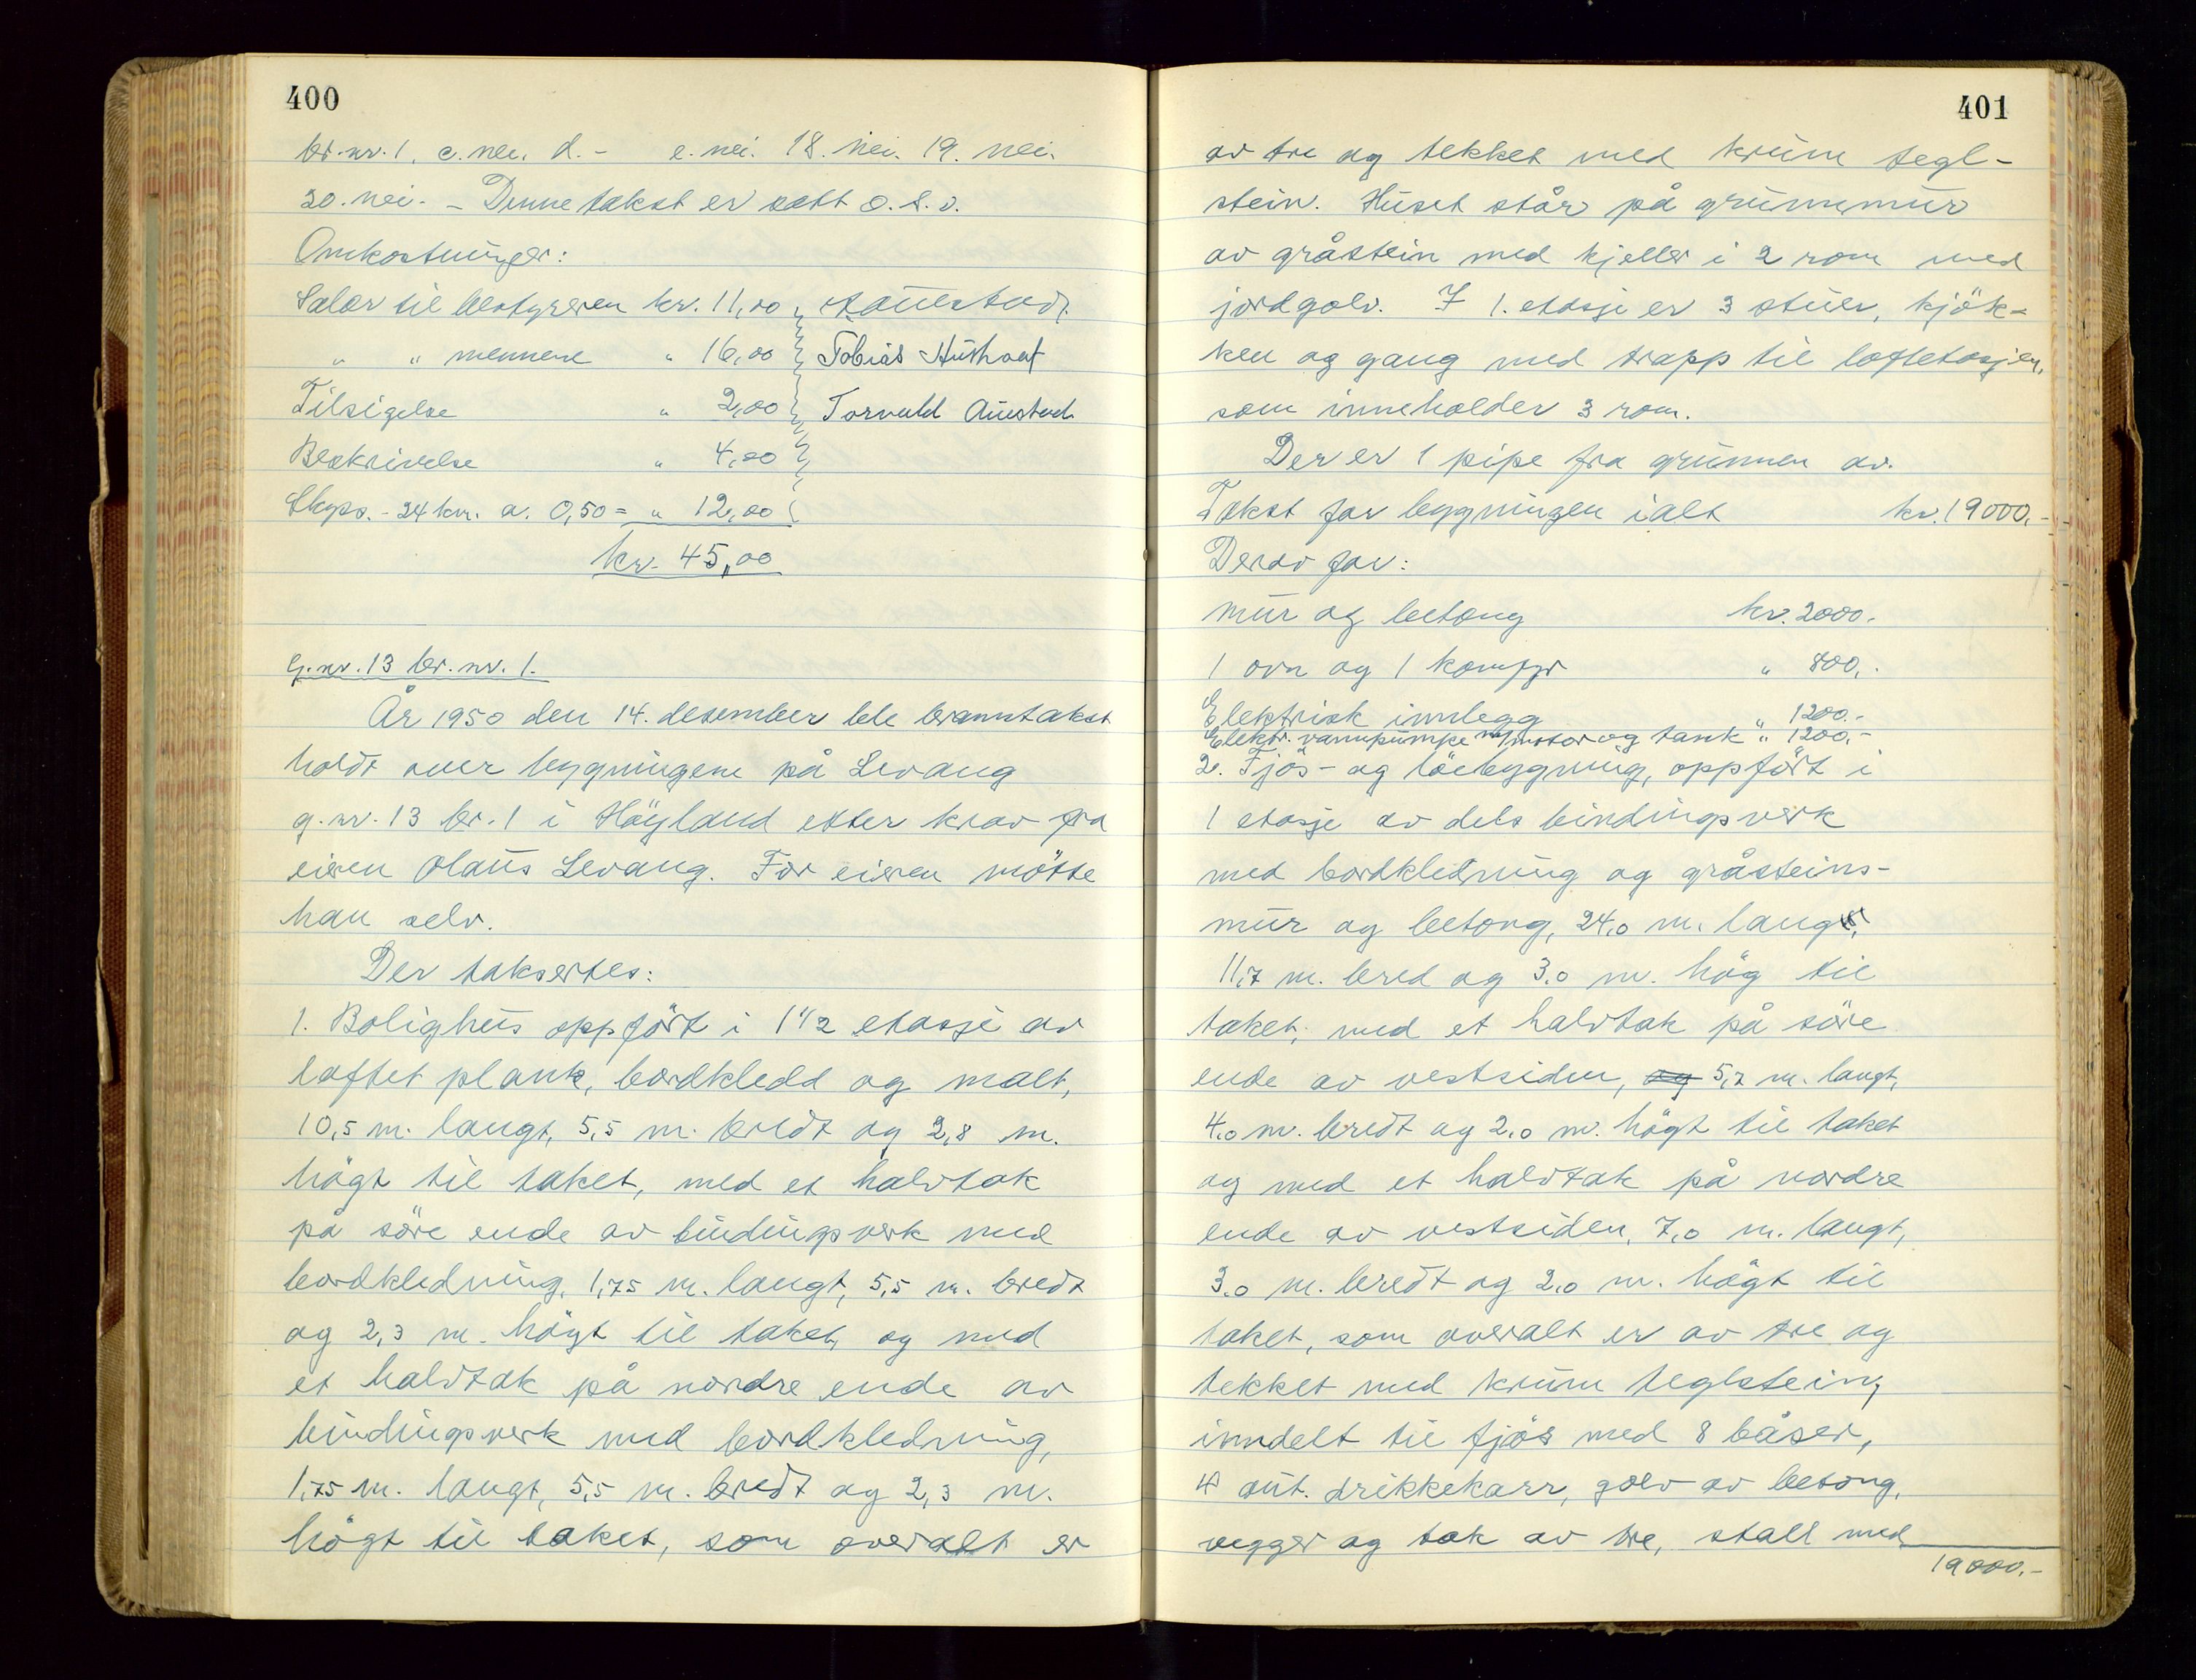 400
br.nr. 1, c. nei. d. - e. nei. 18. nei. 19. nei.
20. nei. - Denne takst er satt o. s. v.
Omkostninger:
Salær til bestyreren kr. 11,00
" " mennene " 16,00 Tobias
Tilsigelse " 2,00 Torvald Austad
Beskrivelse " 4,00
Skyss. - 24 km. a. 0,50 = " 12,00
kr. 45,00
G.nr. 13 br. nr. 1.
År 1950 den 14. desember ble branntakst
holdt over bygningene på Levang
g. nr. 13 br. 1 i Höyland etter krav fra
eieren Olaus Levang. For eieren mötte
han selv.
Der taksertes:
1. Bolighus oppfört i 1 1/2 etasje av
laftet plank, bordkledd og malt,
10,5 m. langt, 5,5 m. bredt og 2,8 m.
högt til taket, med et halvtak
på söre ende av bindingsverk med
bordkledning, 1,75 m. langt, 5,5 m. bredt
og 2,3 m. högt til taket, og med
et halvtak på nordre ende av
bindingsverk med bordkledning,
1,75 m. langt, 5,5 m. bredt og 2,3 m.
högt til taket, som overalt er
401
av tre og tekket med krum tegl-
stein. Huset står på grunnmur
av gråstein med kjeller i 2 rom med
jordgolv. I 1. etasje er 3 stuer, kjök-
ken og gang med trapp til loftetasjen,
som inneholder 3 rom.
Der er 1 pipe fra grunnen av.
Takst for bygningen ialt kr. 19000.-
Derav for:
mur og betong kr. 2000.
1 ovn og 1 komfyr " 800,.
Elektrisk innlegg 1200.-
Elektr. vannpumpe m/motor og tank " 1200.-
2. Fjös- og löebygning, oppfört i
1 etasje av dels bindingsverk
med bordkledning og gråsteins-
mur og betong, 24,0 m. lang,
11,7 m. bred og 3,0 m. hög til
taket, med et halvtak på söre
ende av vestsiden, og 5,7 m. langt,
4,0 m. bredt og 2,0 m. högt til taket
og med et halvtak på nordre
ende av vestsiden, 7,0 m. langt,
3,0 m. bredt og 2,0 m. högt til
taket, som overalt er av tre og
tekket med krum teglstein,
inndelt til fjös med 8 båser,
4 aut. drikkekarr, golv av betong,
vegger og tak av tre, stall med
19000.-